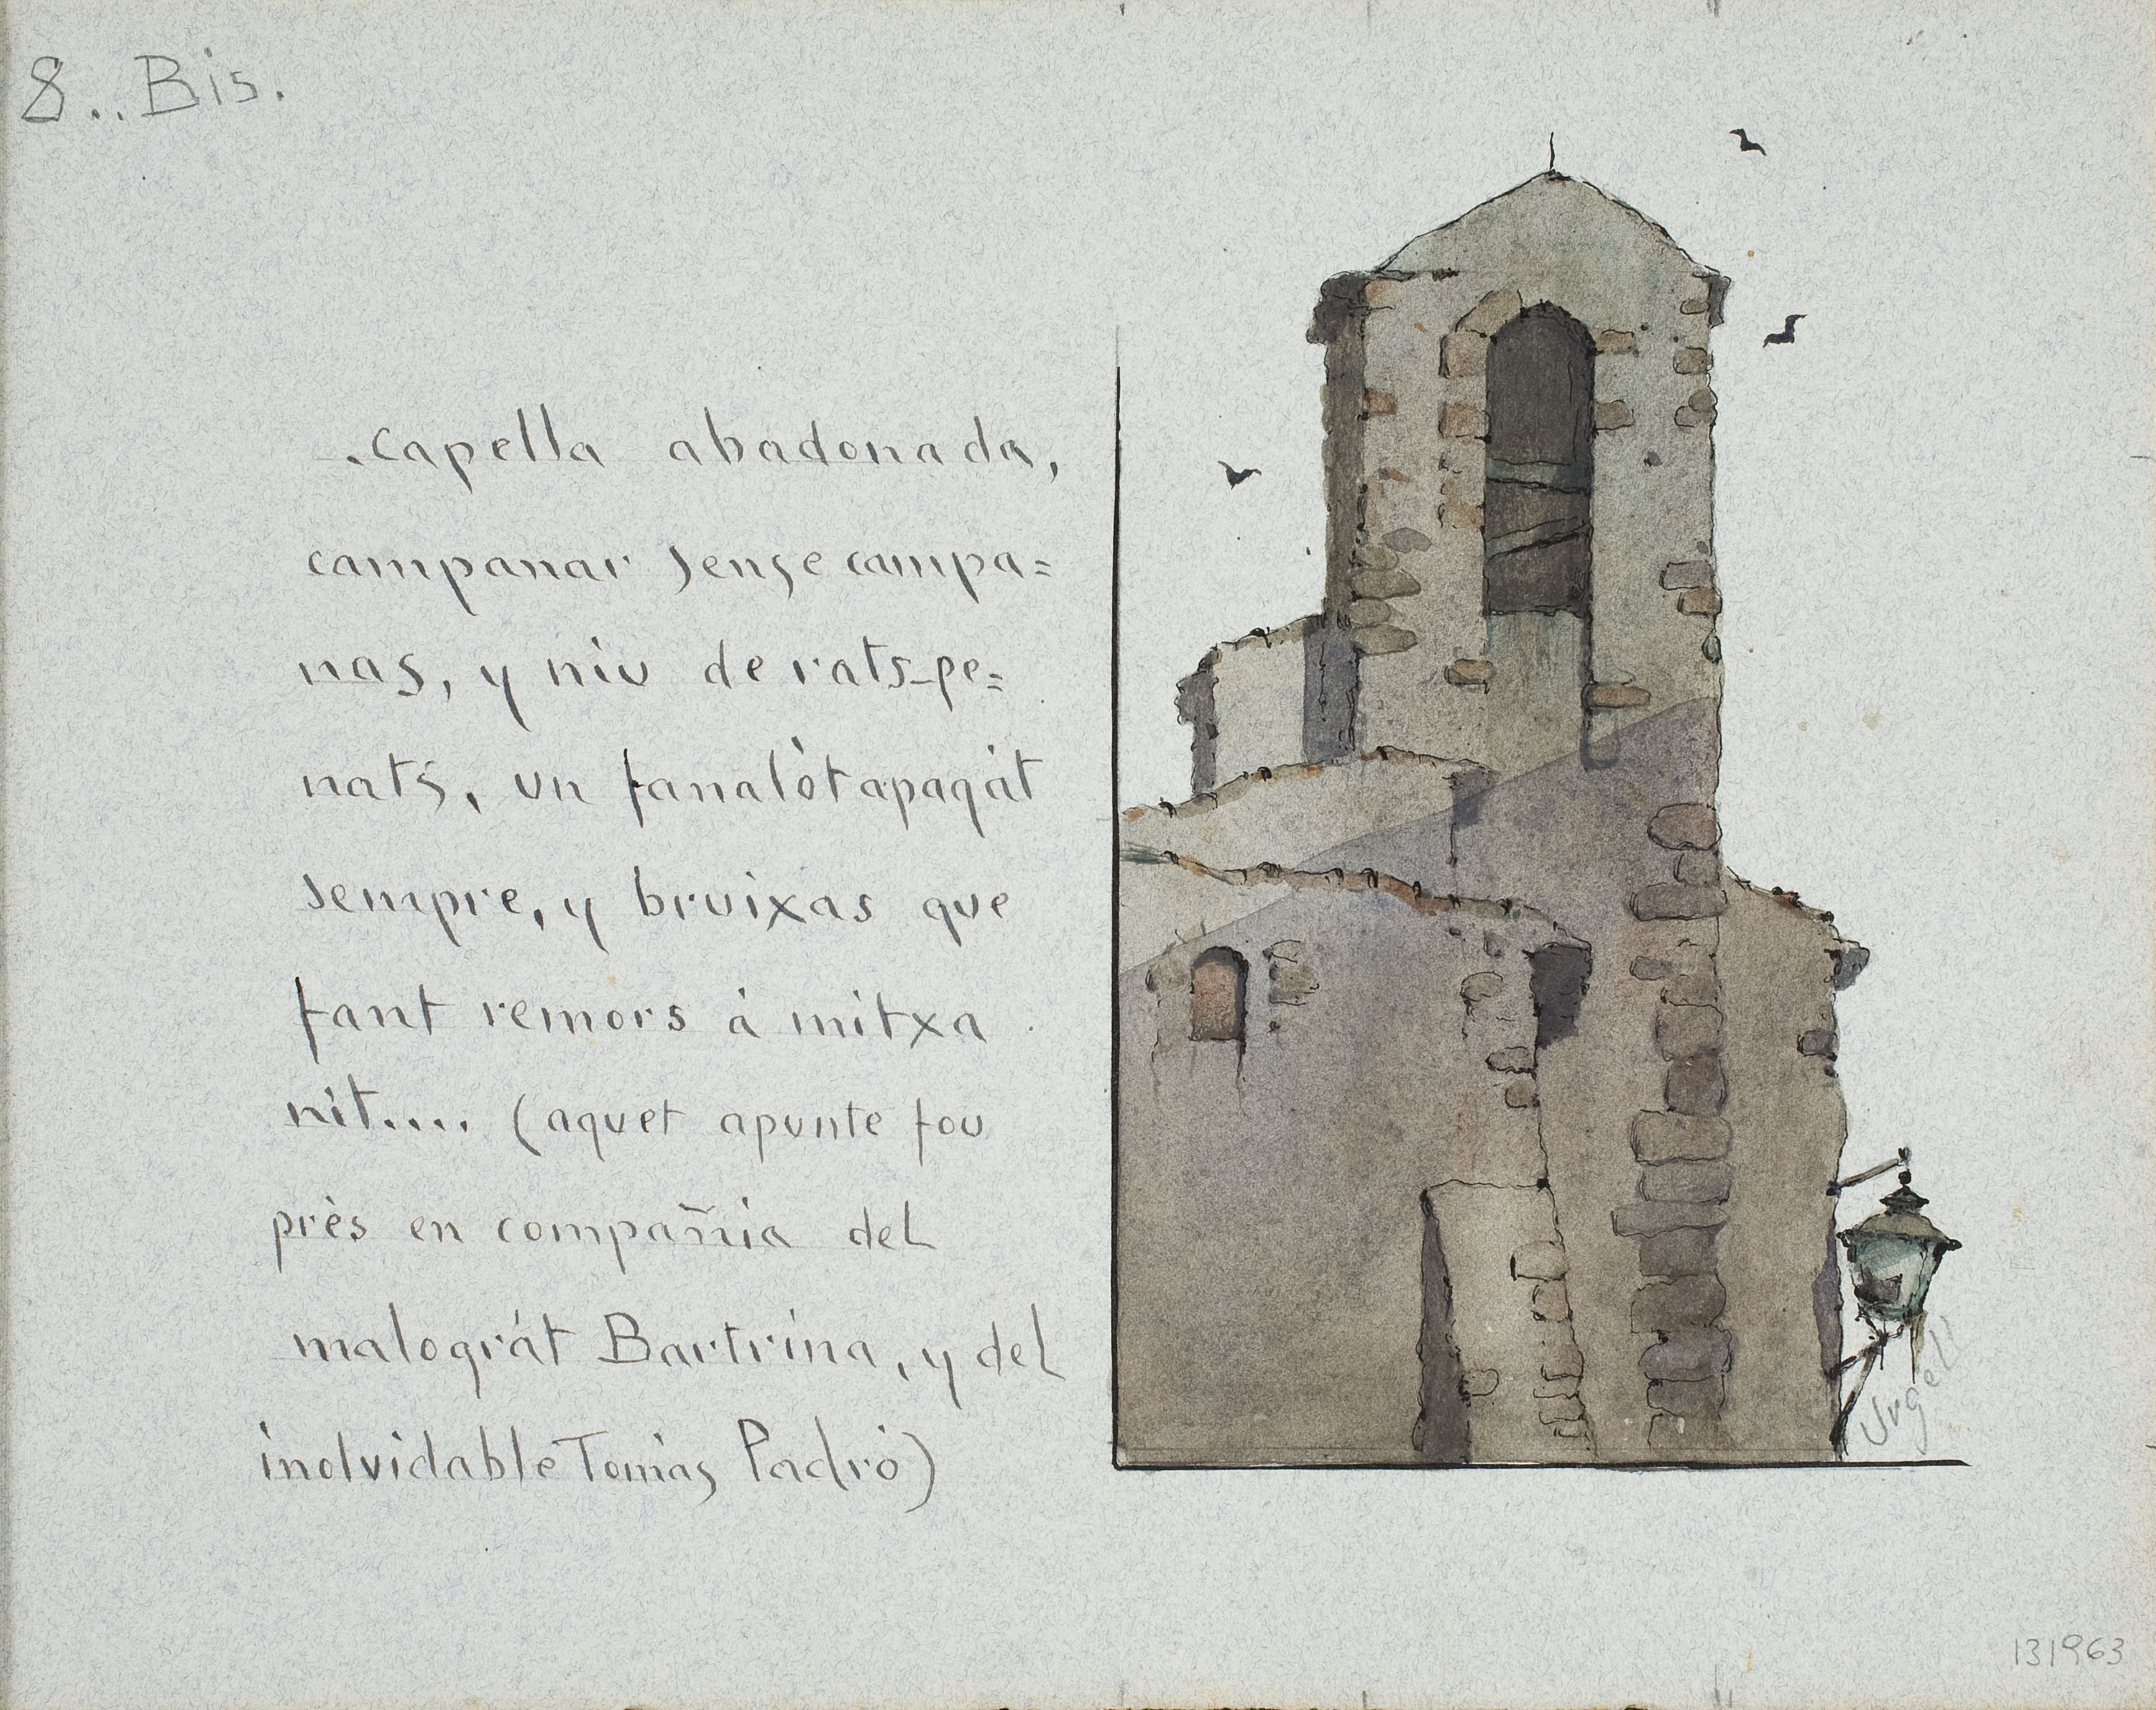 8.. Bis.
.capella abadonada,
campanar sense campa=
nas, y niu de rats-pe=
nats, un fanalòt apagát
sempre, y bruixas que
fant remors á mitxa
nit.... (aquet apunte fou
près en compañia del
malográt Bartrina, y del
inolvidable Tomás Padró)
Urgell
131963